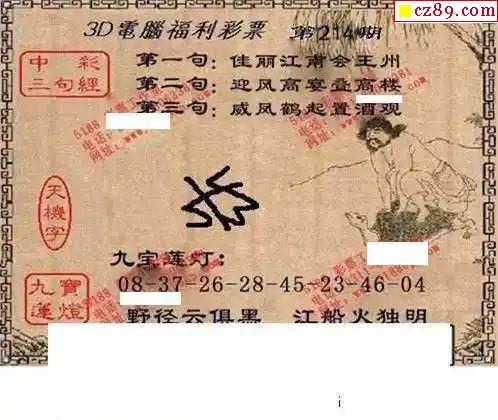 cz89.com
3D電腦福利彩票 第214期
中彩三句經
第一句：佳丽江南会王州
第二句：迎风高宴叠高楼
第三句：威凤鹤起置酒观
天機字
九宝莲灯：
08-37-26-28-45-23-46-04
九寶蓮燈
野径云俱墨 江船火独明
i